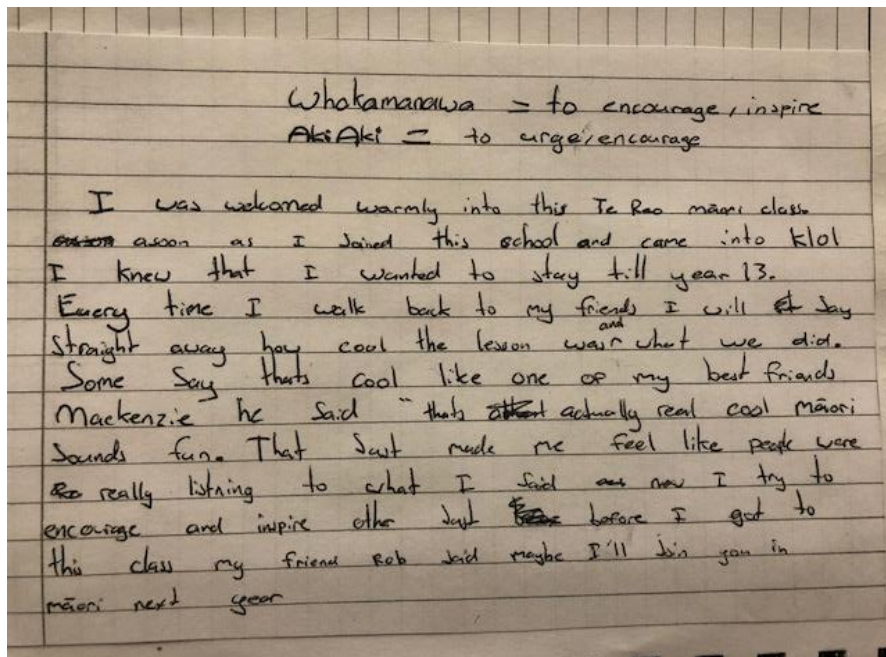 Whakamanawa = to encourage, inspire
AkiAki = to urge, encourage
I was welcomed warmly into this Te Reo māori class.
asoon as I Joined this school and came into klol
I knew that I wanted to stay till year 13.
Every time I walk back to my friends I will say
straight away how cool the lesson was and what we did.
Some Say thats cool like one of my best friends
Mackenzie he said "thats actually real cool māori
sounds fun. That Just made me feel like people were
really listning to what I said now I try to
encourage and inspire other Just before I got to
this class my friend Rob said maybe I'll Join you in
māori next year